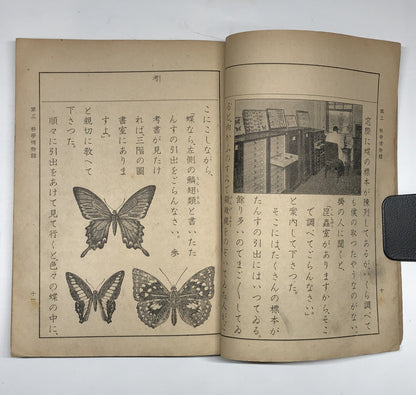 第三 科學博物館
十
窓際に蝶の標本が
陳列してあるが、いくら調べて
も僕の取つたやうなのがない。
掛の人に聞くと、
「昆蟲室がありますから、そこ
で調べてごらんなさい。」
と案内して下さつた。
そこには、たくさんの標本が
たんすの引出にはいつてゐる。
餘り多いのでまご〱してゐ
こにこしながら、
蝶なら、左側の鱗翅類と書いたた
んすの引出をごらんなさい。參
考書が見たけ
れば、三階の圖
書室にありま
すよ。」
と親切に教へて
下さつた。
順々に引出をあけて見て行くと、色々の蝶の中に、
第三 科學博物館
十一